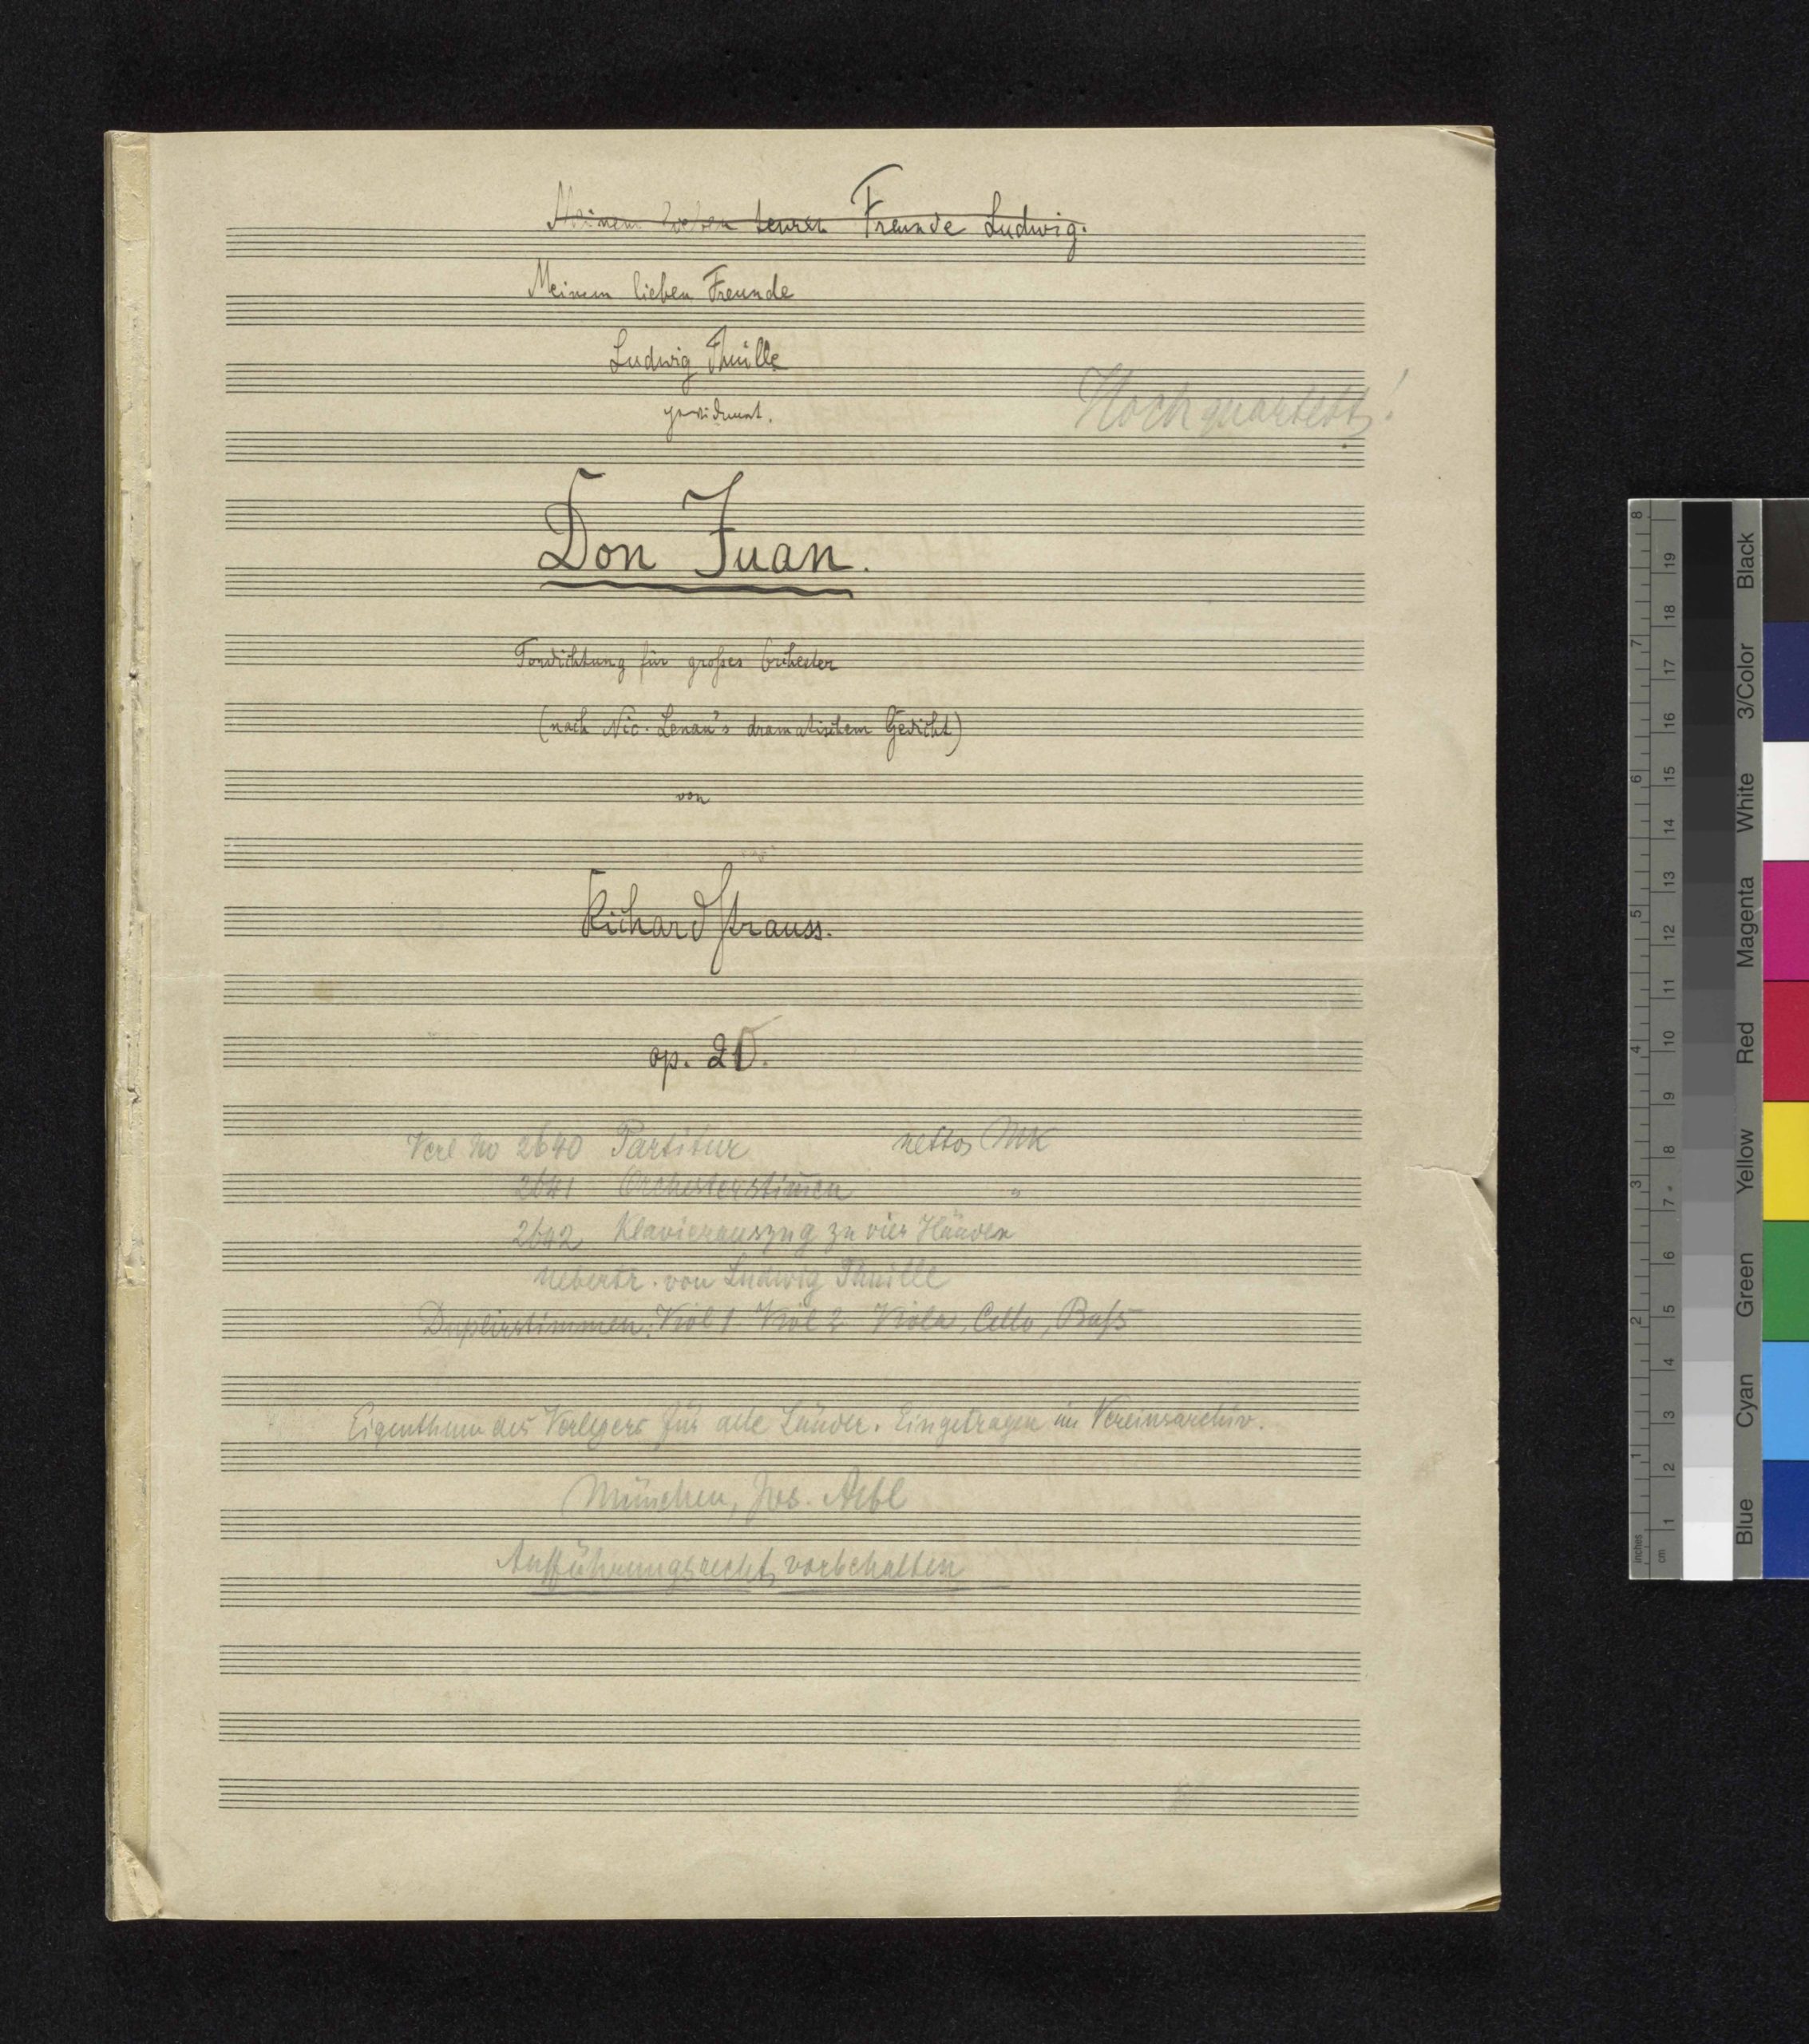 Meinem lieben teuren Freunde Ludwig.
Meinem lieben Freunde
Ludwig Thuille
gewidmet.
Hochquartett!
Don Juan.
Tondichtung für großes Orchester
(nach Nic. Lenau's dramatischem Gedicht)
von
Richard Strauss.
op. 20.
Verl No 2640 Partitur netto Mk
2641 Orchesterstimmen "
2642 Klavierauszug zu vier Händen
Uebertr. von Ludwig Thuille
Duplirstimmen: Viol 1 Viol 2 Viola, Cello, Baß
Eigenthum des Verlegers für alle Länder. Eingetragen im Vereinsarchiv.
München, Jos. Aibl
Aufführungsrecht vorbehalten
inches 1 2 3 4 5 6 7 8
cm 1 2 3 4 5 6 7 8 9 10 11 12 13 14 15 16 17 18 19
Blue Cyan Green Yellow Red Magenta White 3/Color Black